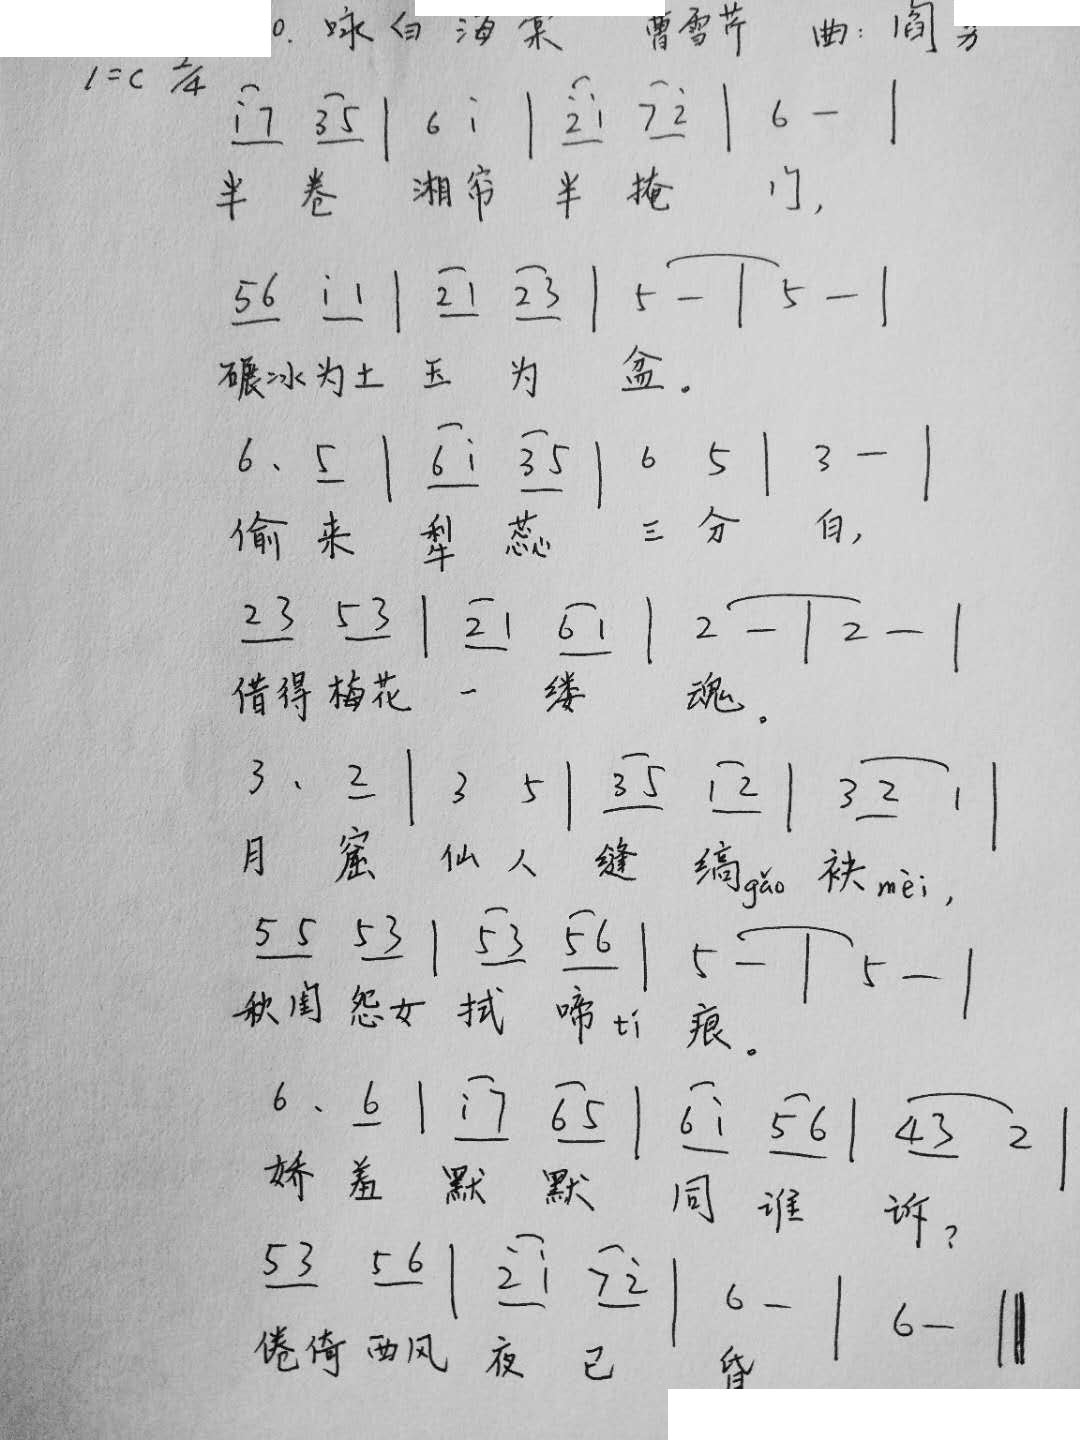 0. 咏白海棠 曹雪芹 曲: 阎
1=C 2/4
i7 35 | 6 i | 2i 72 | 6 - |
半卷 湘帘 半掩 门,
56 i1 | 21 23 | 5 - | 5 - |
碾冰为土 玉 为 盆。
6. 5 | 6i 35 | 6 5 | 3 - |
偷来 犁蕊 三分 白,
23 53 | 21 61 | 2 - | 2 - |
借得梅花 一 缕 魂。
3. 2 | 3 5 | 35 12 | 32 1 |
月窟 仙人 缝 缟gǎo 袂mèi,
55 53 | 53 56 | 5 - | 5 - |
秋闺怨女 拭 啼tí 痕。
6. 6 | i7 65 | 6i 56 | 43 2 |
娇羞 默默 同谁 诉?
53 56 | 2i 72 | 6 - | 6 - ‖
倦倚西风 夜已 昏